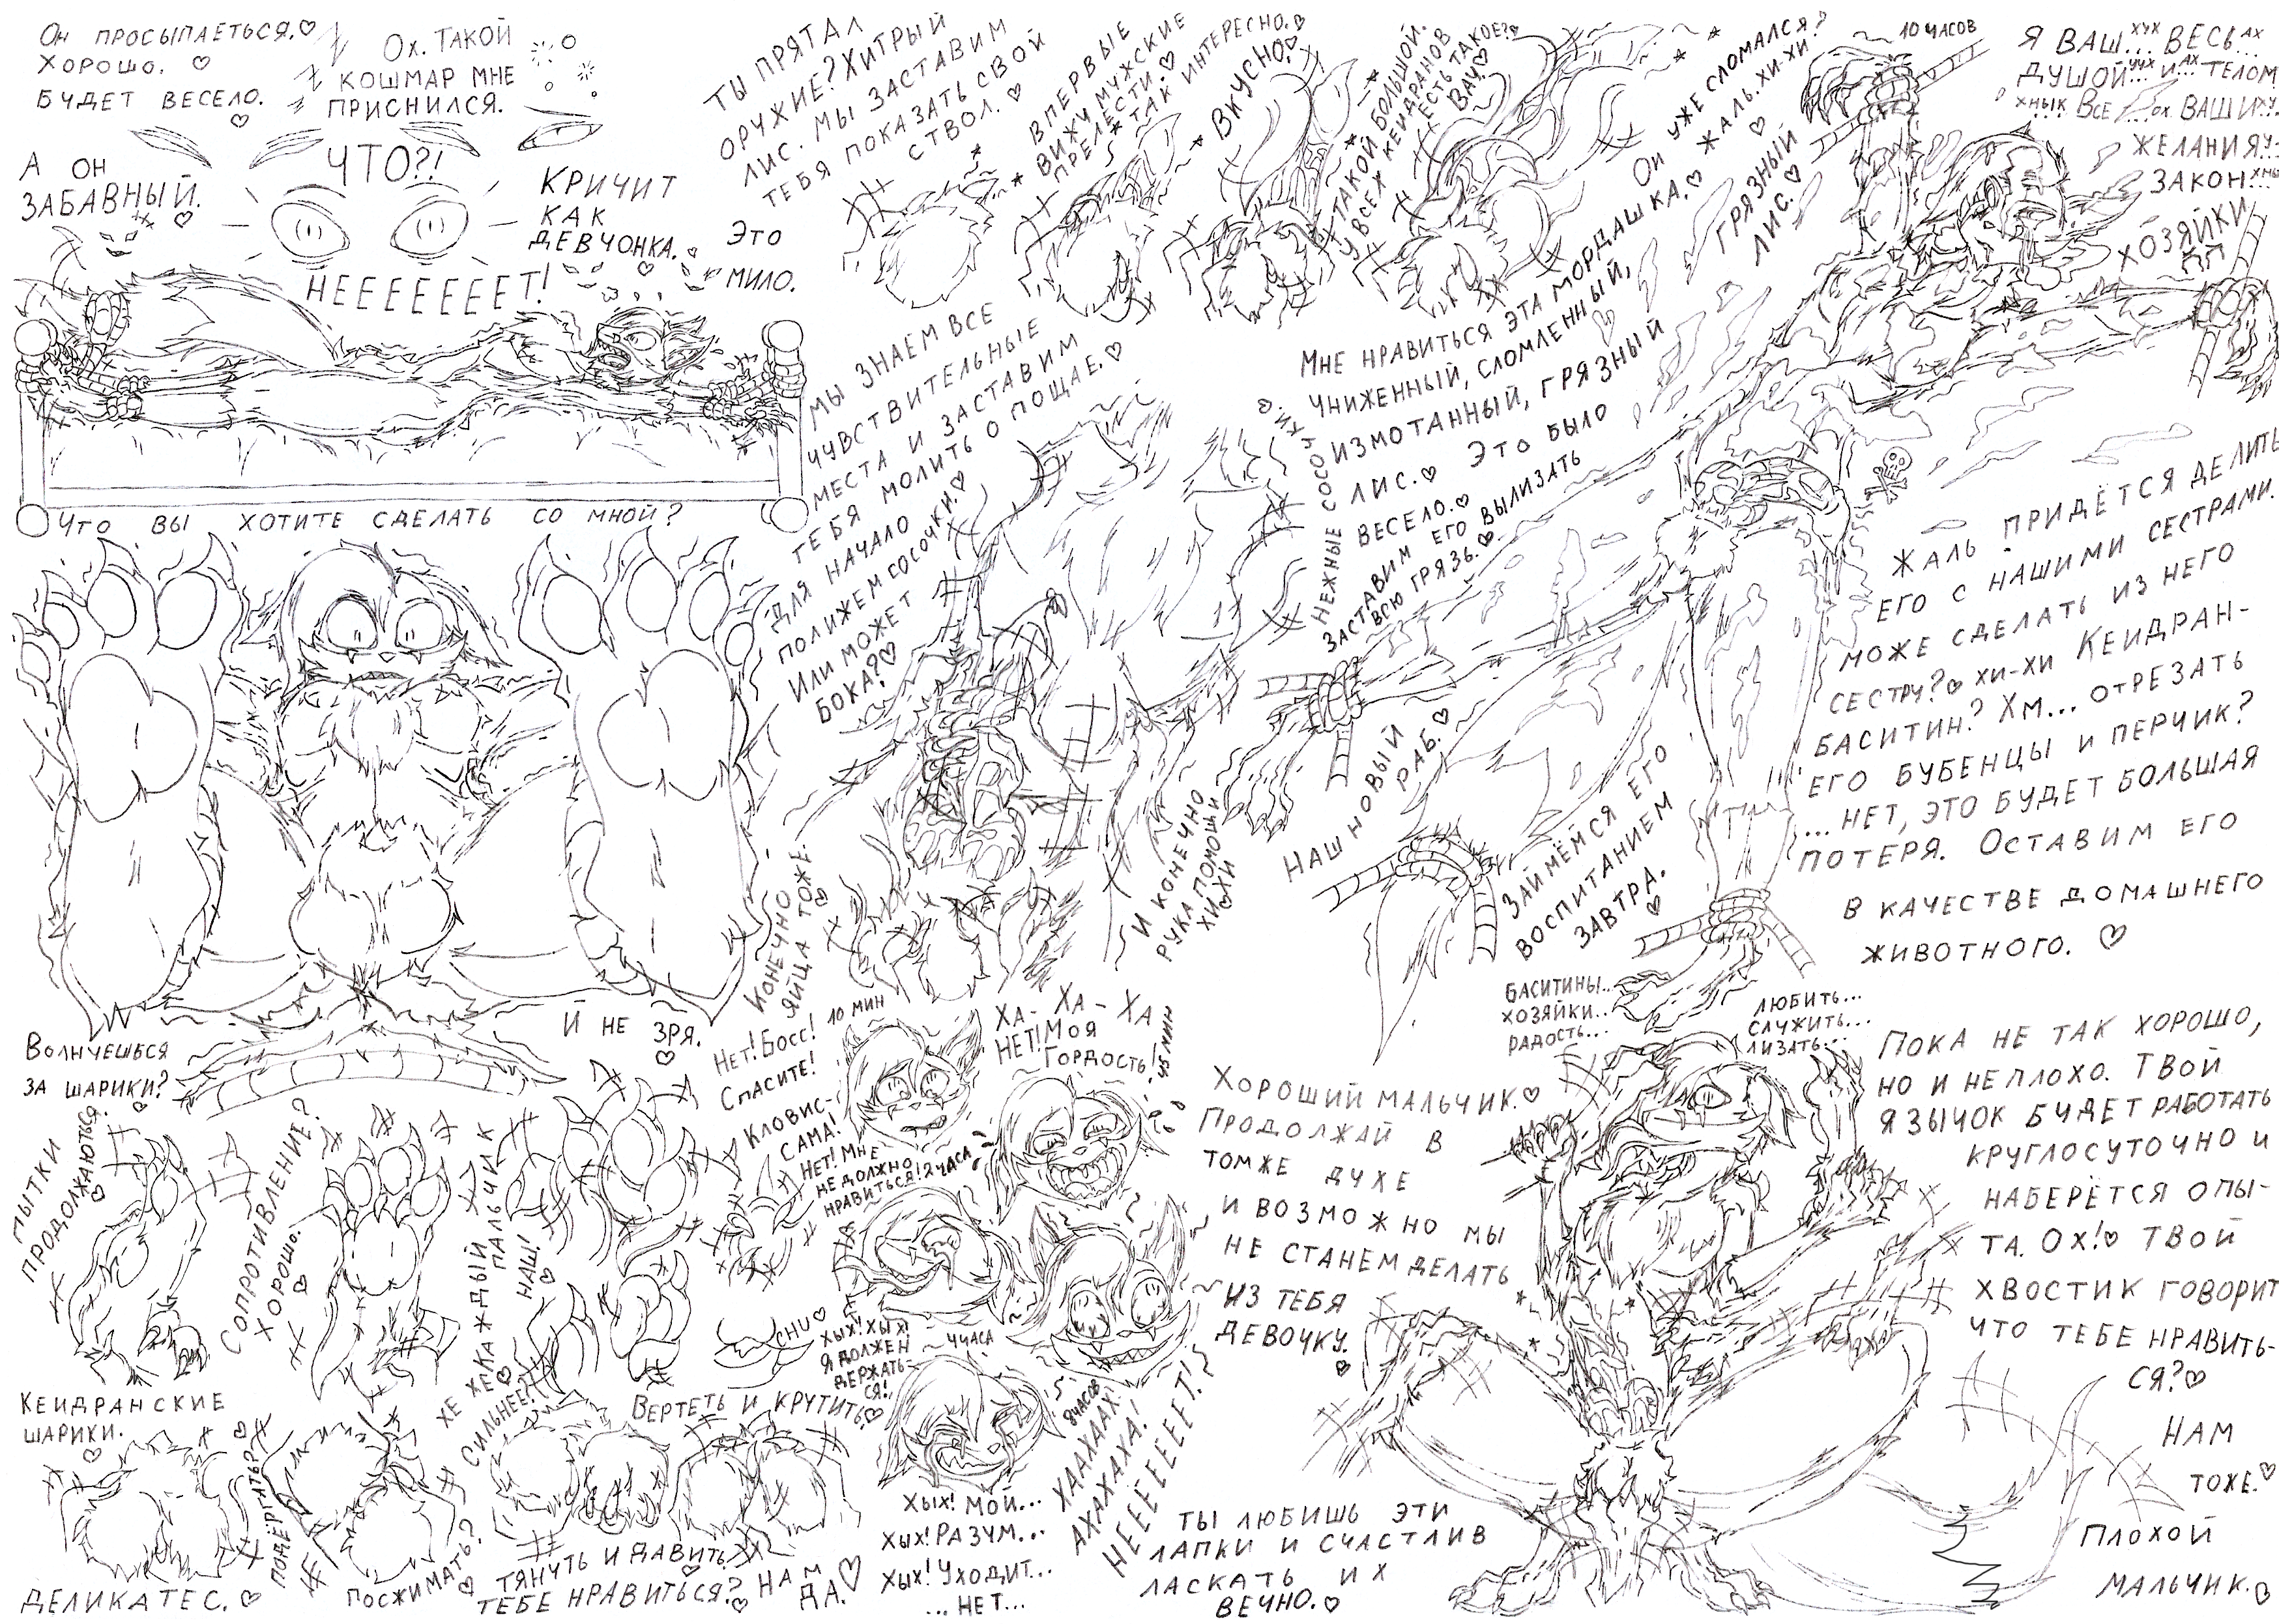 Он просыпаеться.♡
Хорошо. ♡
Будет весело. ♡
Ох. Такой
кошмар мне
приснился.
А он
забавный. ♡
Что?!
Кричит
как
девчонка. ♡
Это
мило.
Нееееееет!
Что вы хотите сделать со мной?
Волнуешься
за шарики? ♡
И не зря. ♡
Пытки
продолжаються. ♡
Сопротивление?
Хорошо. ♡
Хе хе ♡
Каждый
пальчик
наш! ♡
Chu ♡
Кеидранские
шарики. ♡
Деликатес. ♡
Подёргать? ♡
Посжимать? ♡
Сильнее? ♡
Тянуть и давить. ♡
Вертеть и крутить ♡
Тебе нравиться? ♡
Нам
да. ♡
Ты прятал
оружие? Хитрый
лис. Мы заставим
тебя показать свой
ствол. ♡
Впервые
вижу мужские
прелести. ♡
Так интересно. ♡
Вкусно. ♡
Такой большой.
У всех кеидранов
есть такое? ♡
Вау. ♡
Мы знаем все
чувствительные
места и заставим
тебя молить о пощае. ♡
Для начало
полижем сосочки. ♡
Или может
бока? ♡
Нежные сосочки ♡
Конечно
яйца тоже. ♡
И конечно
рука помощи
хи♡хи
10 мин
Нет! Босс!
Спасите!
Ха-ха-ха
Нет! Моя
гордость!
45 мин
Кловис-
сама!
Нет! Мне
не должно
нравиться!
2 часа
Хых! Хых!
Я должен
держать-
ся!
4 часа
Хых! Мой...
Хых! Разум...
Хых! Уходит...
...нет...
8 часов
Хаахаах!
Ахахаха!
Нееееееет!
Он уже сломался?
Жаль. хи-хи ♡
Грязный
лис. ♡
Мне нравиться эта мордашка. ♡
Униженный, сломленный,
измотанный, грязный
лис. ♡ Это было
весело. ♡
Заставим его вылизать
всю грязь. ♡
10 часов
Я ваш... хух весь... ах
душой... уух и... ах телом
...хнык Все ...ох ваши ху...
желания у-
закон... хны
хозяйки
Наш новый
раб. ♡
Займёмся его
воспитанием
завтра. ♡
Жаль придётся делить
его с нашими сестрами.
Може сделать из него
сестру? ♡ хи-хи Кеидран-
баситин? Хм... отрезать
его бубенцы и перчик?
...нет, это будет большая
потеря. Оставим его
в качестве домашнего
животного. ♡
Баситины...
хозяйки...
радость...
Любить...
служить...
лизать...
Хороший мальчик. ♡
Продолжай в
томже духе
и возможно мы
не станем делать
из тебя
девочку. ♡
Пока не так хорошо,
но и неплохо. Твой
язычок будет работать
круглосуточно и
наберётся опы-
та. Ох! ♡ Твой
хвостик говорит
что тебе нравить-
ся? ♡
Нам
тоже. ♡
Плохой
мальчик. ♡
Ты любишь эти
лапки и счастлив
ласкать их
вечно. ♡